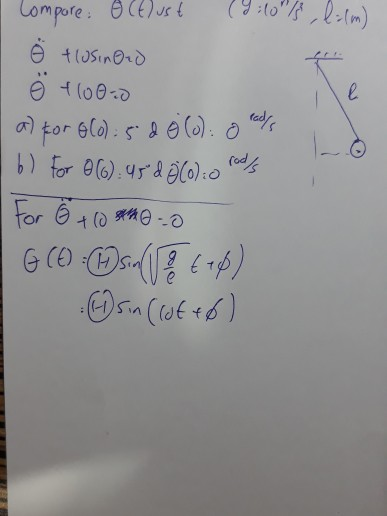 Compare: θ(t) vs t (g=10 m/s², l=1m)
θ̈ +10sinθ=0
θ̈ +10θ=0
l
a) for θ(0)=5° & θ̇(0)=0 rad/s
b) For θ(0)=45° & θ̇(0)=0 rad/s
For θ̈ +10 θ=0
θ(t)=Ⓗsin(√(g/l) t+ϕ)
=Ⓗsin(10t+ϕ)